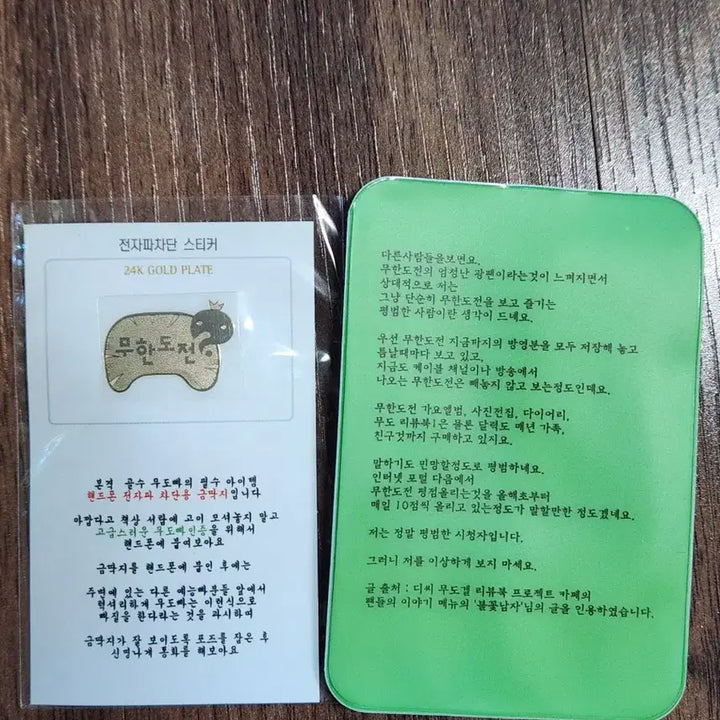 전자파차단 스티커
24K GOLD PLATE
무한도전?
본격 골수 무도빠의 필수 아이템
핸드폰 전자파 차단용 금딱지입니다
아깝다고 책상 서랍에 고이 모셔놓지 말고
고급스러운 무도빠인증을 위해서
핸드폰에 붙여보아요
금딱지를 핸드폰에 붙인 후에는
주변에 있는 다른 예능빠분들 앞에서
럭셔리하게 무도빠는 이런식으로
빠질을 한다라는 것을 과시하며
금딱지가 잘 보이도록 포즈를 잡은 후
신명나게 통화를 해보아요
다른사람들을보면요.
무한도전의 엄청난 광팬이라는것이 느껴지면서
상대적으로 저는
그냥 단순히 무한도전을 보고 즐기는
평범한 사람이란 생각이 드네요.
우선 무한도전 지금까지의 방영분을 모두 저장해 놓고
틈날때마다 보고 있고,
지금도 케이블 채널이나 방송에서
나오는 무한도전은 빼놓지 않고 보는정도인데요.
무한도전 가요앨범, 사진전집, 다이어리,
무도 리뷰북1은 물론 달력도 매년 가족,
친구것까지 구매하고 있지요.
말하기도 민망할정도로 평범하네요.
인터넷 포털 다음에서
무한도전 평점올리는것을 올해초부터
매일 10점씩 올리고 있는정도가 말할만한 정도겠네요.
저는 정말 평범한 시청자입니다.
그러니 저를 이상하게 보지 마세요.
글 출처 : 디씨 무도갤 리뷰북 프로젝트 카페의
팬들의 이야기 메뉴의 '불꽃남자'님의 글을 인용하였습니다.